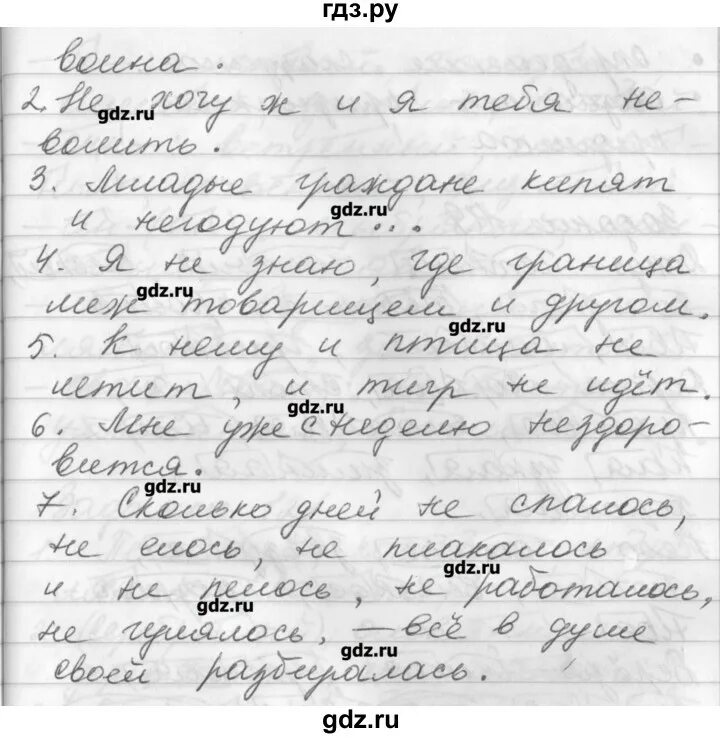 гдз.ру
воина.
2. Не хочу ж и я тебя не-
gdz.ru
волить.
3. Младые граждане кипят
gdz.ru
и негодуют...
4. Я не знаю, где граница
gdz.ru
меж товарищем и другом.
gdz.ru
5. К нему и птица не
летит, и тигр не идёт.
gdz.ru
6. Мне уже с неделю нездоро-
вится.
gdz.ru
7. Сколько дней не спалось,
не елось, не плакалось
gdz.ru
и не пелось, не работалось,
gdz.ru
не гулялось, – всё в душе
gdz.ru
своей разбиралась.
gdz.ru